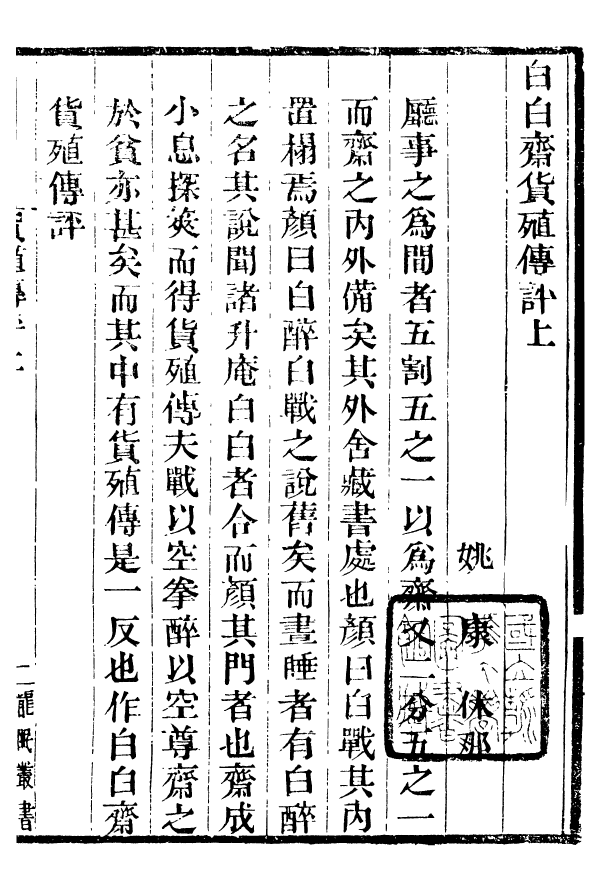 白白齋貨殖傳評上
姚康休那
廳事之爲間者五割五之一以爲齋又二分五之一
而齋之內外備矣其外舍藏書處也顏曰白戰其內
置榻焉顏曰白醉白戰之說舊矣而晝睡者有白醉
之名其說聞諸升庵白白者合而顏其門者也齋成
小息探筴而得貨殖傳夫戰以空拳醉以空尊齋之
於貧亦甚矣而其中有貨殖傳是一反也作白白齋
貨殖傳評
貨殖傳評上
一
龍眠叢書